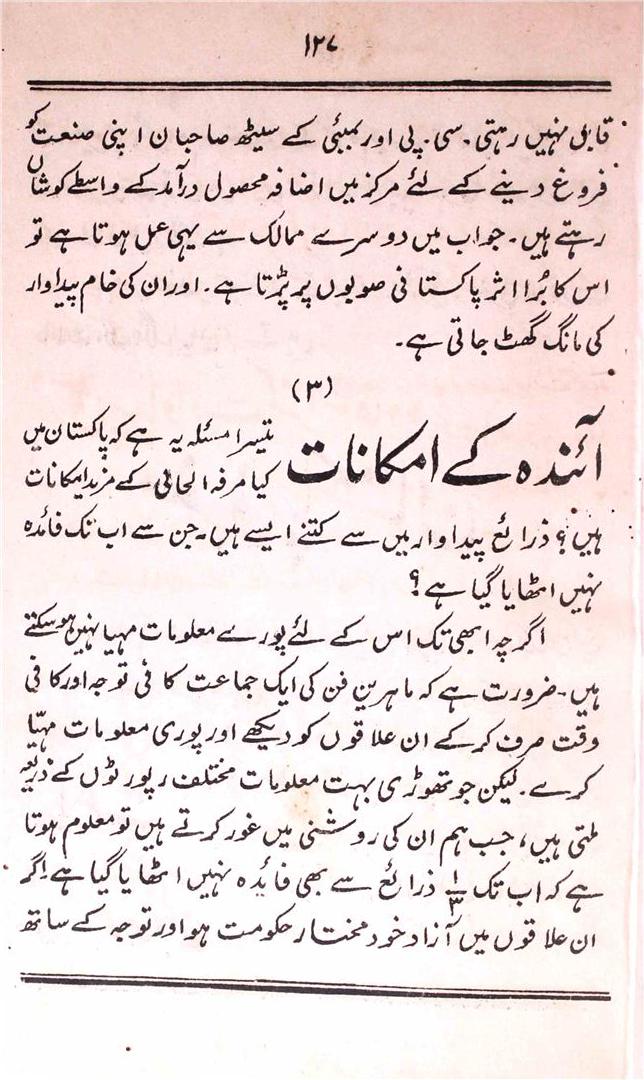 ۱۲۷
قابل نہیں رہتی۔ سی۔ پی اور بمبئی کے سیٹھ صاحبان اپنی صنعت کو
فروغ دینے کے لئے مرکز میں اضافہ محصول درآمد کے واسطے کوشاں
رہتے ہیں۔ جواب میں دوسرے ممالک سے یہی عمل ہوتا ہے تو
اس کا بُرا اثر پاکستانی صوبوں پر پڑتا ہے۔ اور ان کی خام پیداوار
کی مانگ گھٹ جاتی ہے۔
(۳)
آئندہ کے امکانات
تیسرا مسئلہ یہ ہے کہ پاکستان میں
کیا مرفہ الحالی کے مزید امکانات
ہیں؟ ذرائع پیداوار میں سے کتنے ایسے ہیں۔ جن سے اب تک فائدہ
نہیں اٹھایا گیا ہے؟
اگرچہ ابھی تک اس کے لئے پورے معلومات مہیا نہیں ہوسکتے
ہیں۔ ضرورت ہے کہ ماہرین فن کی ایک جماعت کافی توجہ اور کافی
وقت صرف کر کے ان علاقوں کو دیکھے اور پوری معلومات مہیّا
کرے۔ لیکن جو تھوڑی بہت معلومات مختلف رپورٹوں کے ذریعہ
ملتی ہیں، جب ہم ان کی روشنی میں غور کرتے ہیں تو معلوم ہوتا
ہے کہ اب تک ۱/۳ ذرائع سے بھی فائدہ نہیں اٹھایا گیا ہے۔ اگر
ان علاقوں میں آزاد خود مختار حکومت ہو اور توجہ کے ساتھ